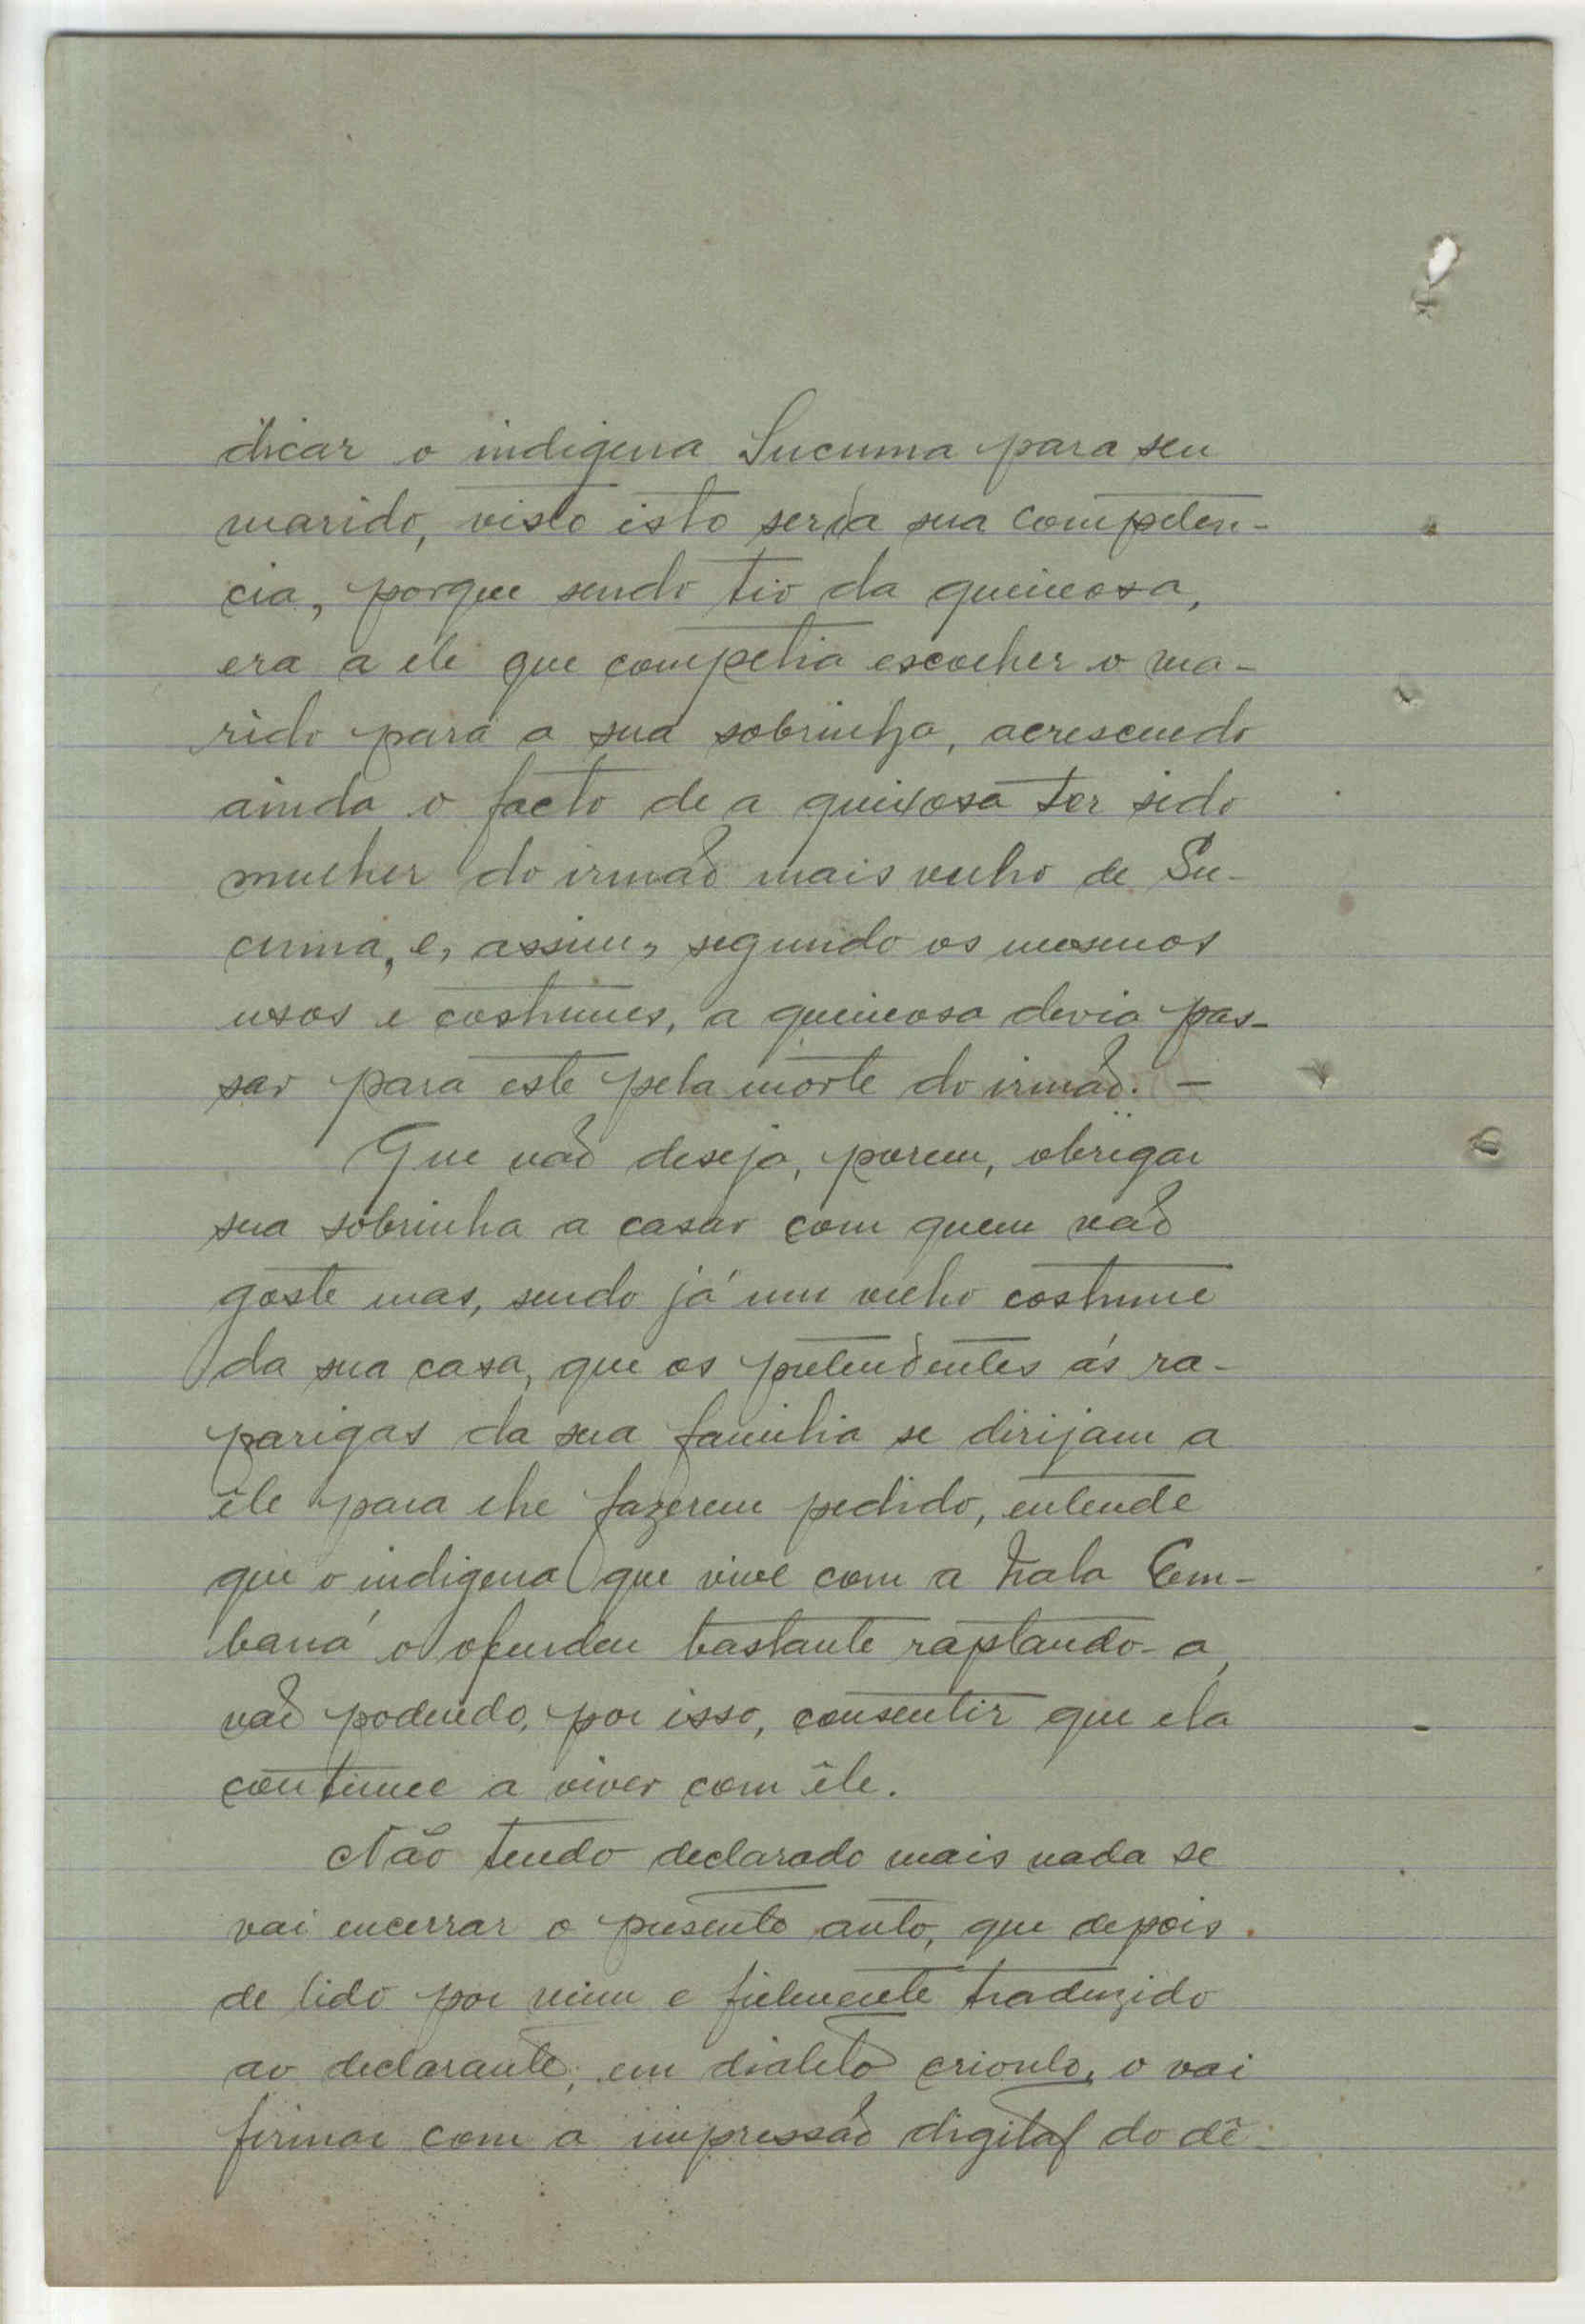 dicar o indigena Sucuma para seu
marido, visto isto ser da sua competen-
cia, porque sendo tio da queixosa,
era a ele que competia escolher o ma-
rido para a sua sobrinha, acrescendo
ainda o facto de a queixosa ter sido
mulher do irmaõ mais velho de Su-
cuma, e, assim, segundo os mesmos
usos e costumes, a queixosa devia pas-
sar para este pela morte do irmaõ. —
Que naõ deseja, porem, obrigar
sua sobrinha a casar com quem naõ
goste mas, sendo já um velho costume
da sua casa, que os pretendentes ás ra-
parigas da sua familia se dirijam a
êle para lhe fazerem pedido, entende
que o indigena que vive com a Em-
baná o ofendeu bastante raptando-a,
naõ podendo, por isso, consentir que ela
continue a viver com êle.
Não tendo declarado mais nada se
vai encerrar o presente auto, que depois
de lido por mim e fielmente traduzido
ao declarante, em dialeto crioulo, o vai
firmar com a impressaõ digital do dê-